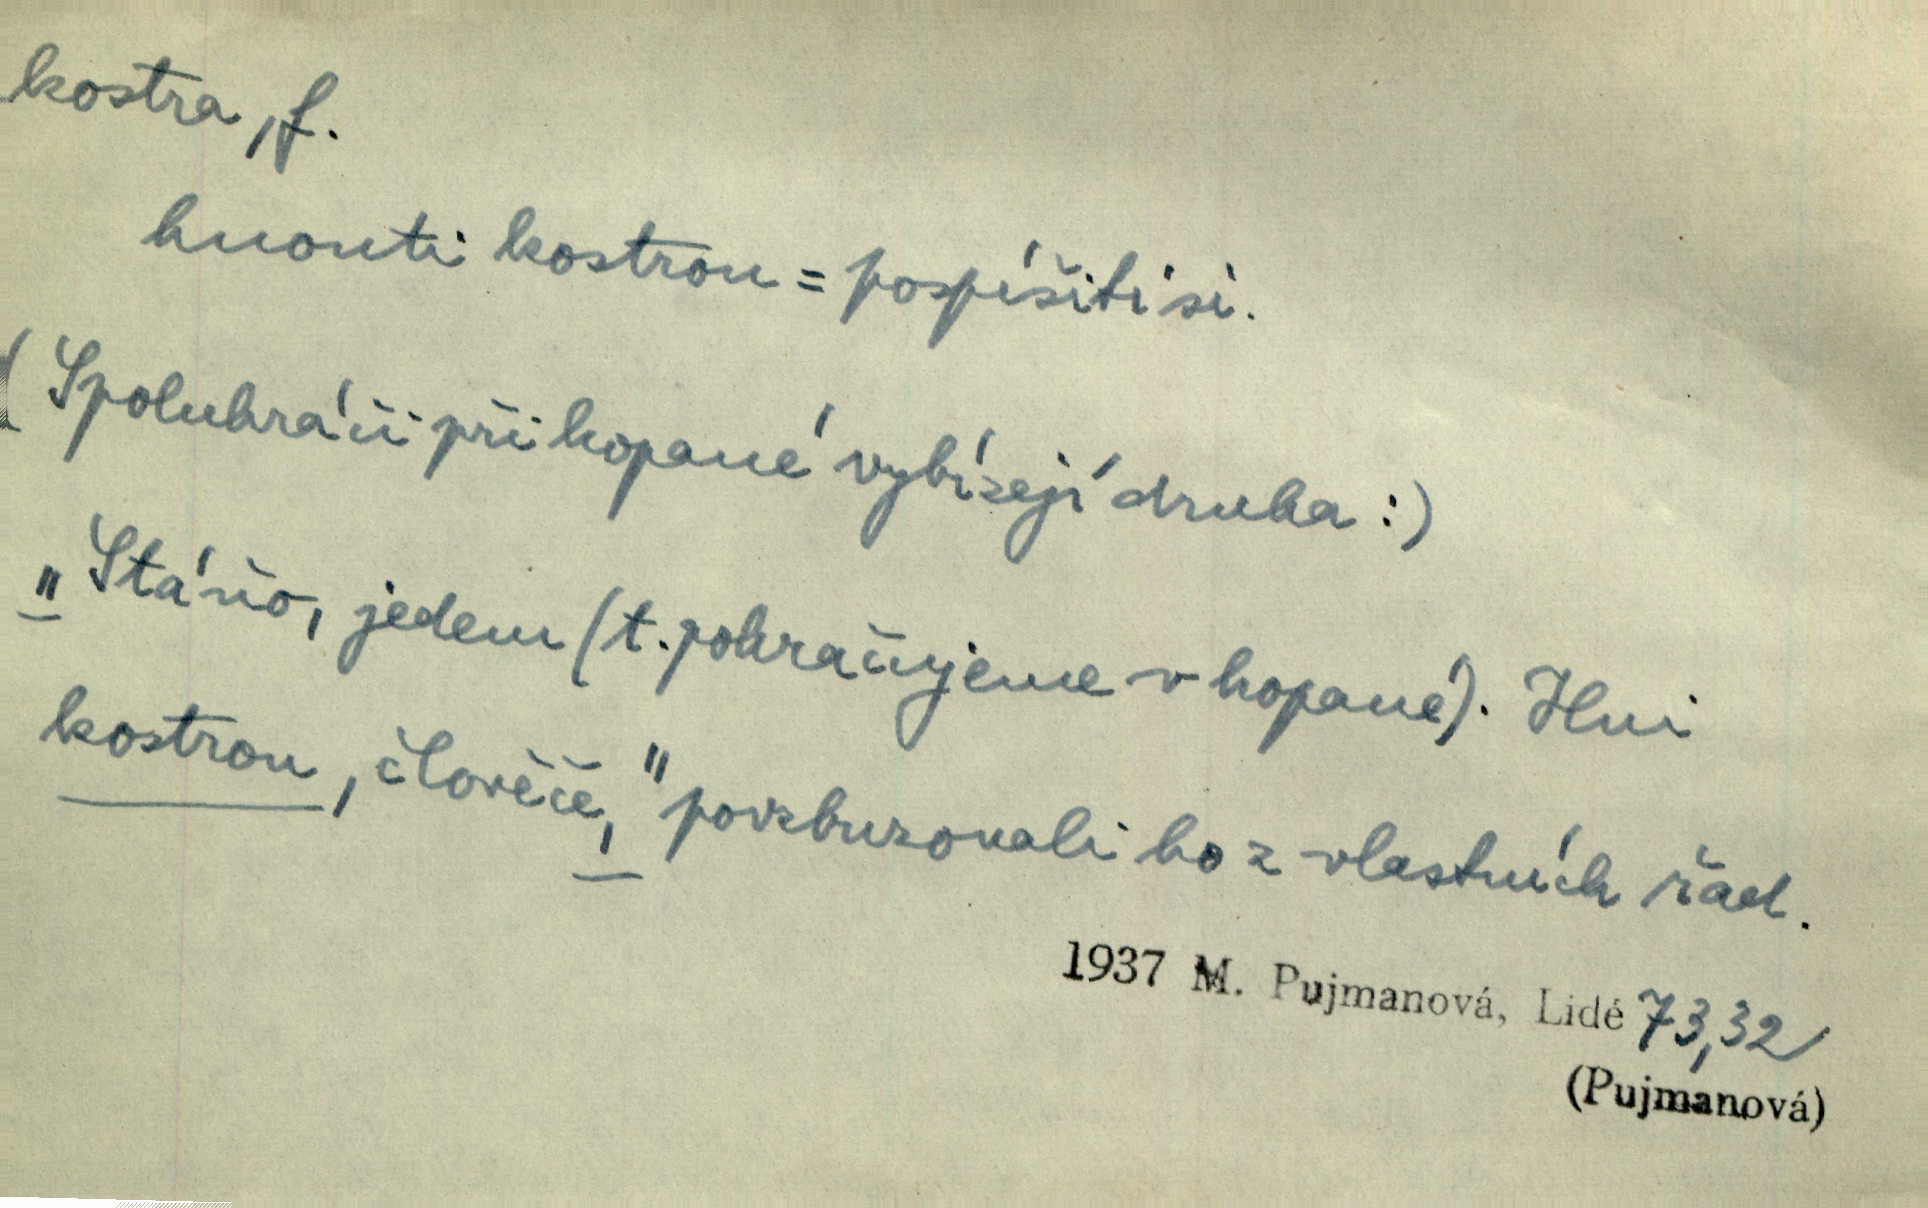 kostra, f.
hnouti kostrou = pospíšiti si.
(Spoluhráči při kopané vybízejí druha:)
"Stáňo, jedem (t. pokračujeme v kopané). Hni
kostrou, člověče," povzbuzovali ho z vlastních řad.
1937 M. Pujmanová, Lidé 73,32
(Pujmanová)